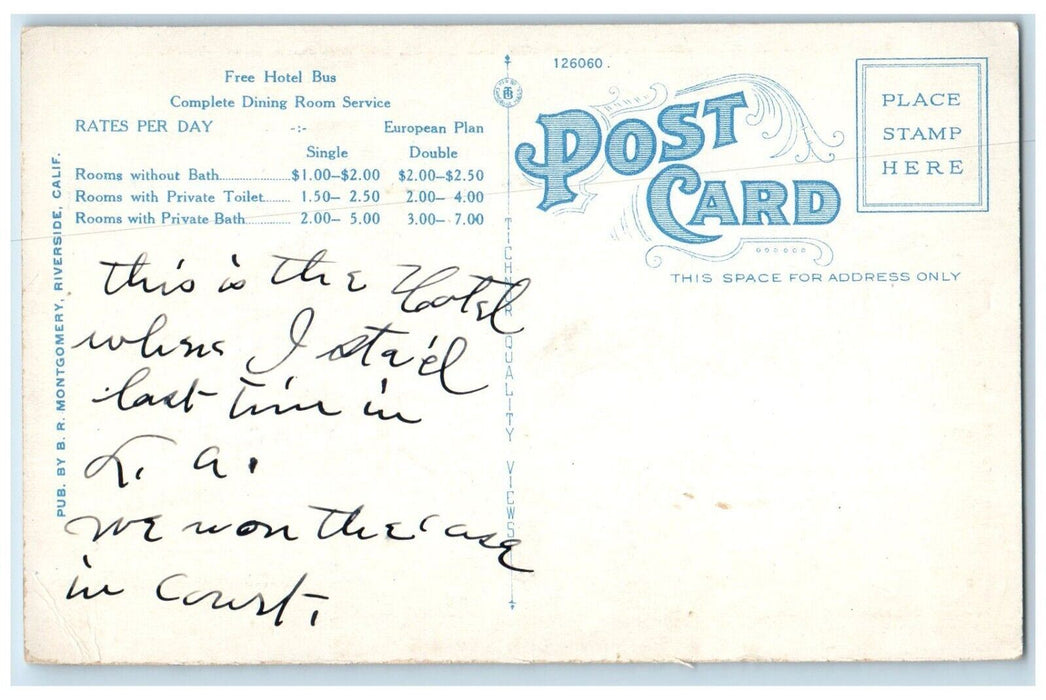 Free Hotel Bus
Complete Dining Room Service
RATES PER DAY -:- European Plan
Single Double
Rooms without Bath $1.00–$2.00 $2.00–$2.50
Rooms with Private Toilet 1.50– 2.50 2.00– 4.00
Rooms with Private Bath 2.00– 5.00 3.00– 7.00
PUB. BY B. R. MONTGOMERY, RIVERSIDE, CALIF.
this is the Hotel
where I sta'd
last time in
L. A.
we won the case
in Court.
TICHNOR QUALITY VIEWS
126060.
POST
CARD
PLACE
STAMP
HERE
THIS SPACE FOR ADDRESS ONLY